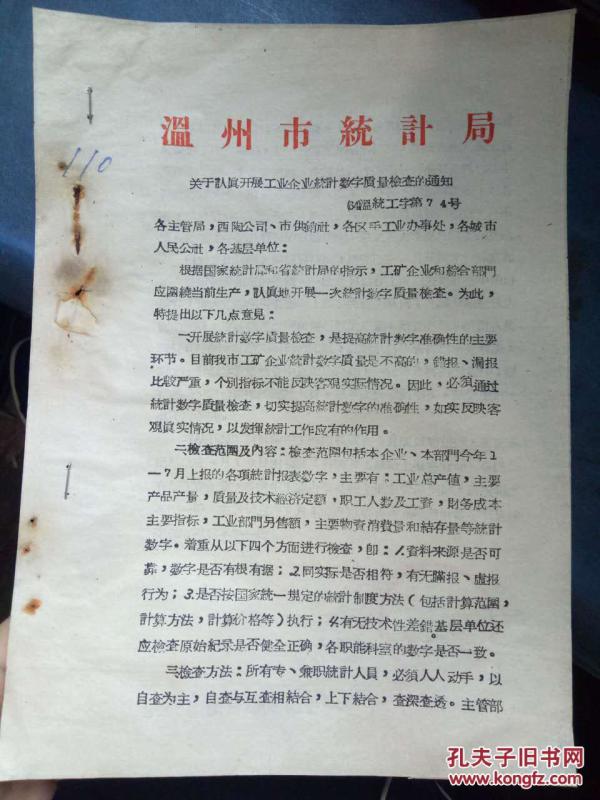 110
溫州市統計局
关于認眞开展工业企业統計数字质量檢查的通知
(64)温統工字第74号
各主管局，西陶公司、市供銷社，各区手工业办事处，各城市
人民公社，各基层单位：
根据国家統計局和省統計局的指示，工矿企业和綜合部門
应圍繞当前生产，認眞地开展一次統計数字质量檢查。为此，
特提出以下几点意見：
一、开展統計数字质量檢查，是提高統計数字准确性的主要
环节。目前我市工矿企业統計数字质量是不高的，錯报、漏报
比較严重，个别指标不能反映客观实际情况。因此，必須通过
統計数字质量檢查，切实提高統計数字的准确性，如实反映客
观眞实情况，以发揮統計工作应有的作用。
二、檢查范圍及內容：檢查范圍包括本企业、本部門今年1
—7月上报的各項統計报表数字，主要有：工业总产值，主要
产品产量，质量及技术經济定額，职工人数及工資，財务成本
主要指标，工业部門另售額，主要物資消費量和結存量等統計
数字。着重从以下四个方面进行檢查，卽：1.資料来源是否可
靠，数字是否有根有据；2.同实际是否相符，有无瞞报、虛报
行为；3.是否按国家統一規定的統計制度方法（包括計算范圍，
計算方法，計算价格等）执行；4.有无技术性差錯。基层单位还
应檢查原始紀录是否健全正确，各职能科室的数字是否一致。
三、檢查方法：所有专、兼职統計人員，必須人人动手，以
自查为主，自查与互查相結合，上下結合，查深查透。主管部
孔夫子旧书网
www.kongfz.com